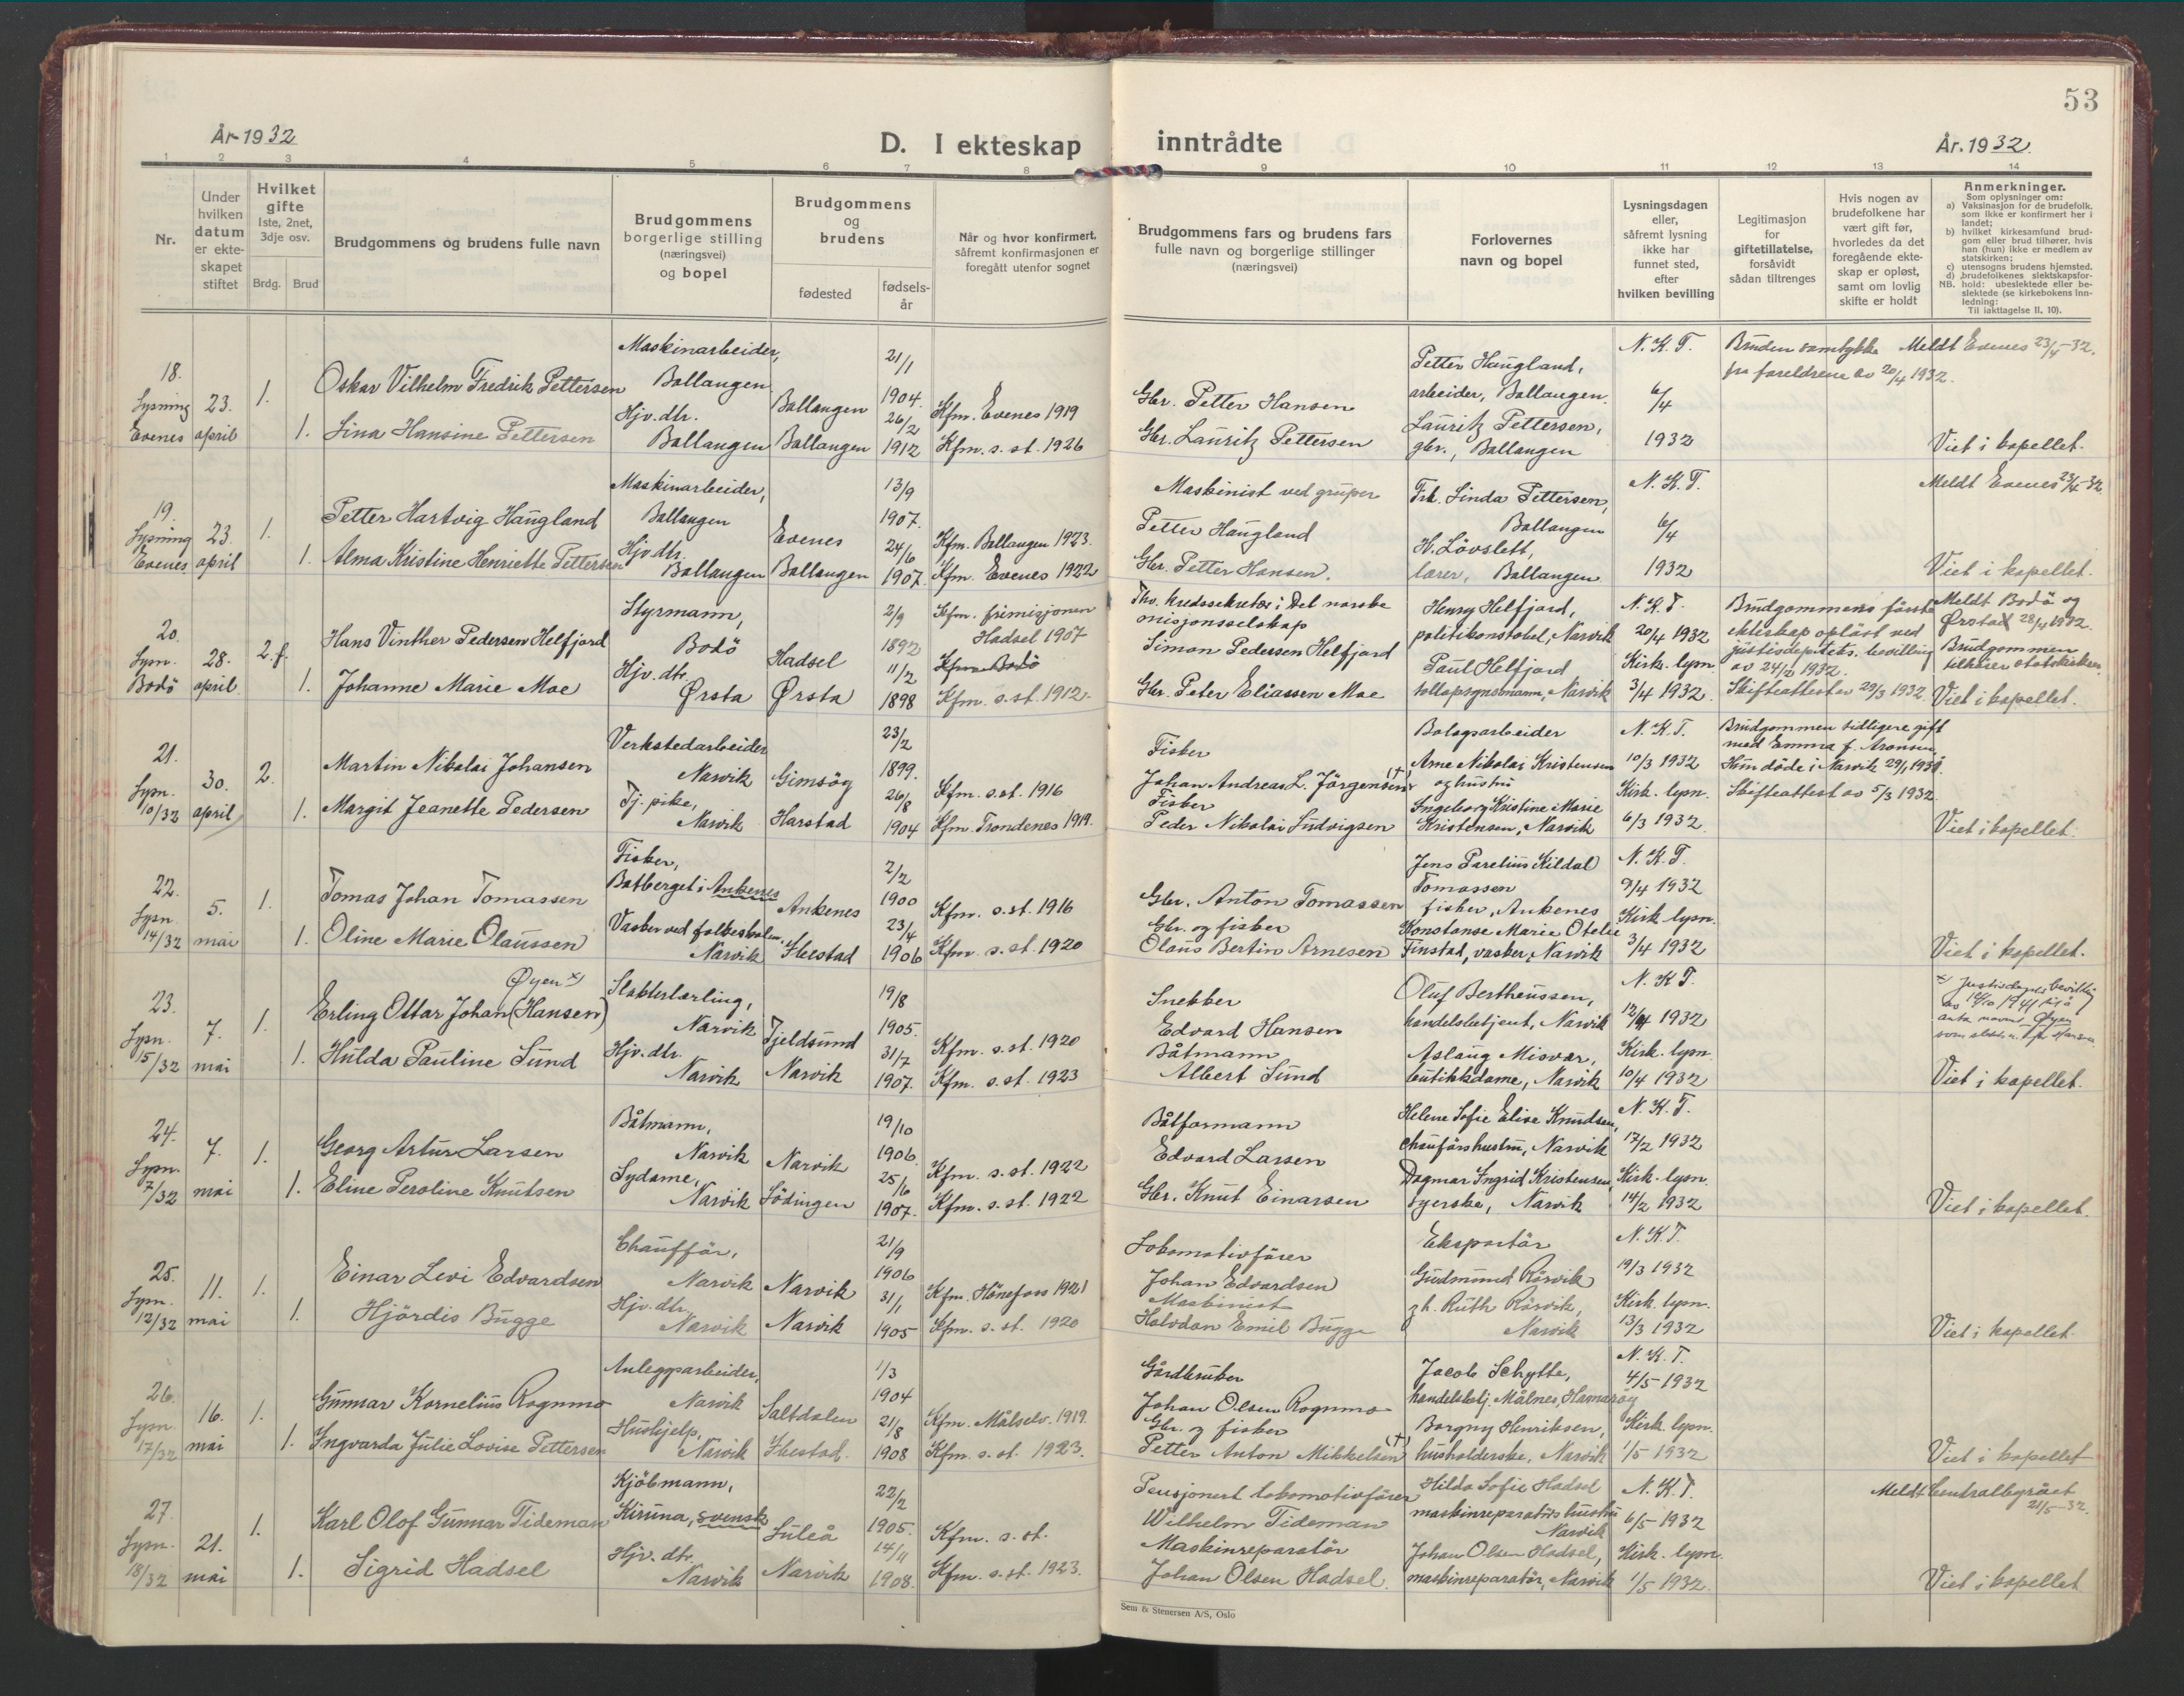 53
År 1932
D. I ekteskap inntrådte
År 1932
1 2 3 4 5 6 7 8 9 10 11 12 13 14
Nr.
Under hvilken datum er ekte-skapet stiftet
Hvilket gifte
1ste, 2net, 3dje osv.
Brdg. Brud
Brudgommens og brudens fulle navn
Brudgommens borgerlige stilling (næringsvei) og bopel
Brudgommens og brudens
fødested
fødsels-år
Når og hvor konfirmert, såfremt konfirmasjonen er foregått utenfor sognet
Brudgommens fars og brudens fars fulle navn og borgerlige stillinger (næringsvei)
Forlovernes navn og bopel
Lysningsdagen eller, såfremt lysning ikke har funnet sted, efter hvilken bevilling
Legitimasjon for giftetillatelse, forsåvidt sådan tiltrenges
Hvis nogen av brudefolkene har vært gift før, hvorledes da det foregående ekte-skap er opløst, samt om lovlig skifte er holdt
Anmerkninger.
Som oplysninger om:
a) Vaksinasjon for de brudefolk. som ikke er konfirmert her i landet;
b) hvilket kirkesamfund brud-gom eller brud tilhører, hvis han (hun) ikke er medlem av statskirken;
c) utensogns brudens hjemsted.
d) brudefolkenes slektskapsfor-hold: ubeslektede eller be-slektede (se kirkebokens inn-ledning:
NB.
Til iakttagelse II. 10).
18. Lysning Evenes
23. april
1.
Oskar Vilhelm Fredrik Pettersen
Maskinarbeider, Ballangen
Ballangen
21/1 1904.
Kfm. Evenes 1919
Gbr. Petter Hansen
Petter Haugland, arbeider, Ballangen.
N.K.T. 6/4 1932
Bruden samtykke fra foreldrene av 20/4 1932.
Meldt Evenes 23/4-32.
1.
Lina Hansine Pettersen
Hjv. dtr. Ballangen
Ballangen
26/2 1912
Kfm. s. st. 1926
Gbr. Lauritz Pettersen
Lauritz Pettersen, gbr., Ballangen
Viet i kapellet.
19. Lysning Evenes
23. april
1.
Petter Hartvig Haugland
Maskinarbeider, Ballangen
Evenes
13/9 1907.
Kfm. Ballangen 1923.
Maskinist ved gruper Petter Haugland
Frk. Linda Pettersen, Ballangen
N.K.T. 6/4 1932
Meldt Evenes 23/4-32
1.
Alma Kristine Henriette Pettersen
Hjv. dtr. Ballangen
Ballangen
24/6 1907.
Kfm. Evenes 1922
Gbr. Petter Hansen.
H. Lövslett, lærer, Ballangen
Viet i kapellet.
20. Lysn. Bodö
28. april
2. f.
Hans Vinther Pedersen Helfjord
Styrmann, Bodö
Hadsel
2/9 1892
Kfm. frimisjonen Hadsel 1907
Kfm. Bodö
Fhv. kredssekretær i Det norske misjonsselskap
Simon Pedersen Helfjord
Henry Helfjord, politikonstabel, Narvik
N.K.T. 20/4 1932
Brudgommens første ekteskap opløst ved justisdeptets. bevilling av 24/2 1932.
Skifteattest av 29/3 1932
Meldt Bodö og Ørsta 28/4 1932.
Brudgommen tilhører statskirken
1.
Johanne Marie Moe
Hjv. dtr. Ørsta
Ørsta
11/2 1898
Kfm. s. st. 1912.
Gbr. Peter Eliassen Moe
Paul Helfjord tollopsynsmann, Narvik
Kirk. lysn. 3/4 1932
Viet i kapellet.
21. Lysn. 10/32
30. april
2.
Martin Nikolai Johansen
Verkstedarbeider Narvik
Gimsöy
23/2 1899.
Kfm. s. st. 1916
Fisker Johan Andreas L. Jörgensen (+)
Bolagsarbeider Arne Nikolai Kristensen og hustru
N.K.T. 10/3 1932
Brudgommen tidligere gift med Emma f. Aronsen. Hun döde i Narvik 29/1 1930.
Skifteattest av 5/3 1932.
1.
Margit Jeanette Pedersen
Tj. pike, Narvik
Harstad
26/8 1904
Kfm. Trondenes 1919.
Fisker Peder Nikolai Ludvigsen
Ingeborg Kristine Marie Kristensen, Narvik
Kirk. lysn. 6/3 1932
Viet i kapellet.
22. Lysn. 14/32
5. mai
1.
Tomas Johan Tomassen
Fisker, Batberget i Ankenes
Ankenes
2/2 1900
Kfm. s. st. 1916
Gbr. Anton Tomassen
Jens Parelius Kildal Tomassen fisker, Ankenes
N.K.T. 9/4 1932
1.
Oline Marie Olaussen
Vasker ved folkeskolen, Narvik
Ibestad
23/4 1906
Kfm. s. st. 1920
Gbr. og fisker Olaus Bertin Arnesen
Konstanse Marie Otelie Finstad, vasker, Narvik
Kirk. lysn. 3/4 1932
Viet i kapellet.
23. Lysn. 15/32
7. mai
1.
Øyen x)
Erling Ottar Johan (Hansen)
Slakterlærling, Narvik
Tjeldsund
19/8 1905.
Kfm. s. st. 1920
Snekker Edvard Hansen
Oluf Bertheussen, handelsbetjent, Narvik
N.K.T. 12/4 1932
x) Justisdepts bevilling av 14/10 1941 til å anta navnet Øyen som slektsn. f. Hansen
1.
Hulda Pauline Lund
Hjv. dtr. Narvik
Narvik
31/7 1907.
Kfm. s. st. 1923
Båtmann Albert Lund
Aslaug Misvær, butikkdame, Narvik
Kirk. lysn. 10/4 1932
Viet i kapellet.
24. Lysn. 7/32
7. mai
1.
Georg Artur Larsen
Båtmann, Narvik
Narvik
19/10 1906.
Kfm. s. st. 1922
Båtformann Edvard Larsen
Helene Sofie Elise Knudsen, chauførshustru, Narvik
N.K.T. 17/2 1932
1.
Eline Peroline Knutsen
Sydame, Narvik
Lödingen
25/6 1907.
Kfm. s. st. 1922
Gbr. Knut Einarsen
Dagmar Ingrid Kristensen, syerske, Narvik
Kirk. lysn. 14/2 1932
Viet i kapellet.
25. Lysn. 12/32
11. mai
1.
Einar Levi Edvardsen
Chaufför, Narvik
Narvik
21/9 1906
Kfm. Hönefoss 1921
Lokomotivfører Johan Edvardsen
Eksportör Gudmund Rörvik
N.K.T. 19/3 1932
1.
Hjördis Bugge
Hjv. dtr. Narvik
Narvik
31/1 1905
Kfm. s. st. 1920
Maskinist Halvdan Emil Bugge
g.h. Ruth Rörvik, Narvik
Kirk. lysn. 13/3 1932
Viet i kapellet.
26. Lysn. 17/32
16. mai
1.
Gunnar Kornelius Rognmo
Anleggsarbeider, Narvik
Saltdalen
1/3 1904
Kfm. Målselv. 1919.
Gårdbruker Johan Olsen Rognmo
Jacob Schytte, handelsbtj. Målnes, Hamaröy
N.K.T. 4/5 1932
1.
Ingvarda Julie Lovise Pettersen
Hushjelp, Narvik
Ibestad.
21/8 1908
Kfm. s. st. 1923.
Gbr. og fisker Petter Anton Mikkelsen (+)
Borgny Henriksen, husholderske, Narvik
Kirk. lysn. 1/5 1932
Viet i kapellet
27. Lysn. 18/32
21. mai
1.
Karl Olof Gunnar Tideman
Kjöbmann, Kiruna, svensk
Luleå
22/2 1905.
Kfm. s. st.
Pensjonert lokomotivfører Wilhelm Tideman
Hilda Sofie Hadsel maskinreparatörs hustru Narvik
N.K.T. 6/5 1932
Meldt Centralbyrået 21/5-32.
1.
Sigrid Hadsel
Hjv. dtr. Narvik
Narvik
14/11 1908.
Kfm. s. st. 1923.
Maskinreparatör Johan Olsen Hadsel.
Johan Olsen Hadsel, maskinreparatör, Narvik
Kirk. lysn. 1/5 1932.
Viet i kapellet
Sem & Stenersen A/S, Oslo